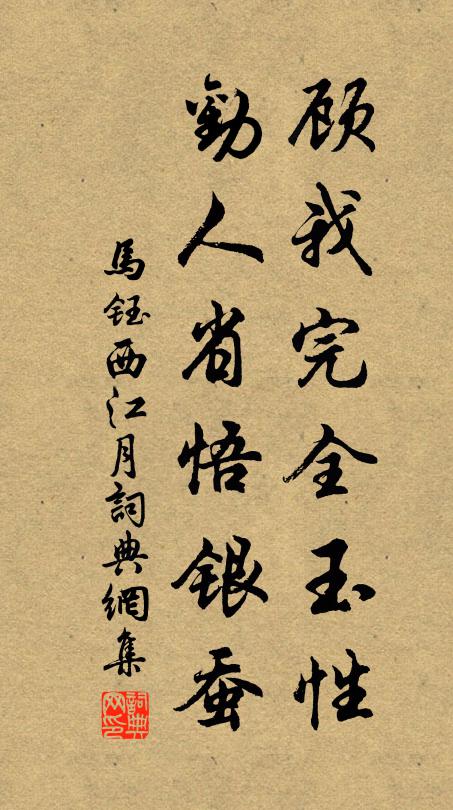 顾我完全玉性
勸人省悟銀蚕
馬鈺西江月詞典網集
詞典网印